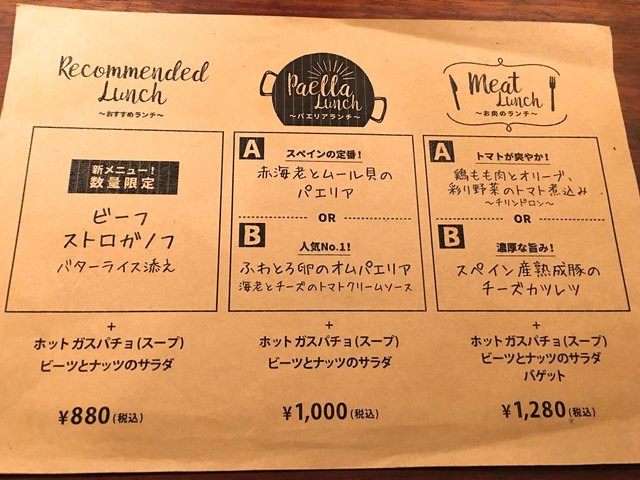 Recommended
Lunch
～おすすめランチ～
新メニュー！
数量限定
ビーフ
ストロガノフ
バターライス添え
+
ホットガスパチョ(スープ)
ビーツとナッツのサラダ
¥880(税込)
Paella
Lunch
～パエリアランチ～
A
スペインの定番！
赤海老とムール貝の
パエリア
OR
B
人気No.1！
ふわとろ卵のオムパエリア
海老とチーズのトマトクリームソース
+
ホットガスパチョ(スープ)
ビーツとナッツのサラダ
¥1,000(税込)
Meat
Lunch
～お肉のランチ～
A
トマトが爽やか！
鶏もも肉とオリーブ、
彩り野菜のトマト煮込み
～チリンドロン～
OR
B
濃厚な旨み！
スペイン産熟成豚の
チーズカツレツ
+
ホットガスパチョ(スープ)
ビーツとナッツのサラダ
バゲット
¥1,280(税込)